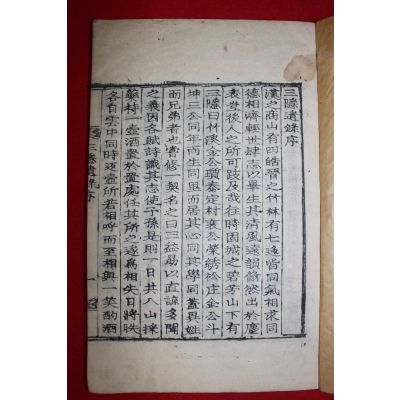 三隱遺錄序
漢之商山有四皓晉之竹林有七逸皆同氣相求同
德相濟輕世肆志以畢生其淸風遠韻翛然出於塵
表豈後人之所可跂及哉往時固城之碧芳山下有
三隱曰竹溪金公瓊泰定村裵公榮綉於庄金公斗
坤三公同年而生同里而居其心同其學同蓋異姓
而兄弟者也嘗修一契名之曰三益焉以直諒多聞
之義因各賦詩識其志使子孫是則一日共入山採
龜持一壺酒置於一處任其所之遂爲相失日將昳
各自雲中同時還壺所若相呼而至相與一笑酌酒
三隱遺錄序
一